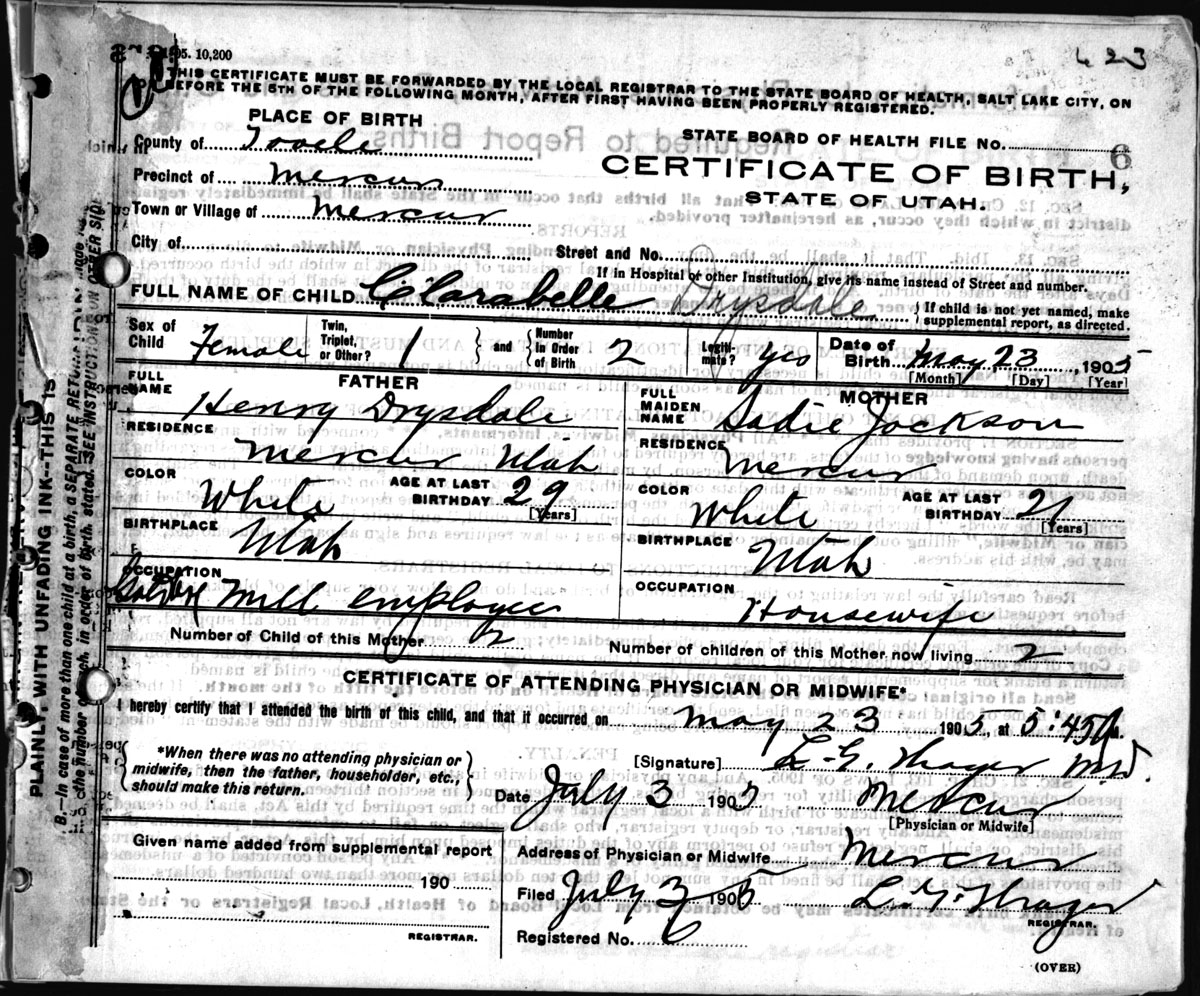 05. 10,200
423
THIS CERTIFICATE MUST BE FORWARDED BY THE LOCAL REGISTRAR TO THE STATE BOARD OF HEALTH, SALT LAKE CITY, ON
BEFORE THE 5TH OF THE FOLLOWING MONTH, AFTER FIRST HAVING BEEN PROPERLY REGISTERED.
PLACE OF BIRTH
County of Tooele
Precinct of Mercur
Town or Village of Mercur
City of
STATE BOARD OF HEALTH FILE NO. 6
CERTIFICATE OF BIRTH,
STATE OF UTAH.
Street and No.
If in Hospital or other Institution, give its name instead of Street and number.
FULL NAME OF CHILD Clarabelle Drysdale { If child is not yet named, make supplemental report, as directed.
Sex of Child Female Twin, Triplet, or Other? 1 } and { Number in Order of Birth 2 Legitimate? yes Date of Birth May 23, 1905
[Month] [Day] [Year]
FATHER
FULL NAME Henry Drysdale
RESIDENCE Mercur Utah
COLOR White AGE AT LAST BIRTHDAY 29
[Years]
BIRTHPLACE Utah
OCCUPATION Mill employee
MOTHER
FULL MAIDEN NAME Sadie Jackson
RESIDENCE Mercur
COLOR White AGE AT LAST BIRTHDAY 21
[Years]
BIRTHPLACE Utah
OCCUPATION Housewife
Number of Child of this Mother 2 Number of children of this Mother now living 2
CERTIFICATE OF ATTENDING PHYSICIAN OR MIDWIFE*
I hereby certify that I attended the birth of this child, and that it occurred on May 23 1905, at 5:45 P.m.
{ *When there was no attending physician or midwife, then the father, householder, etc., should make this return. }
[Signature] M.D.
Date July 3 1905 Mercur
[Physician or Midwife]
Given name added from supplemental report
190
REGISTRAR.
Address of Physician or Midwife Mercur
Filed July 3 1905
REGISTRAR.
Registered No. 6
(OVER)
PLAINLY, WITH UNFADING INK--THIS IS
B.--In case of more than one child at a birth, a SEPARATE RETURN
the number of each, in order of birth, stated. SEE INSTRUCTIONS ON OTHER SIDE